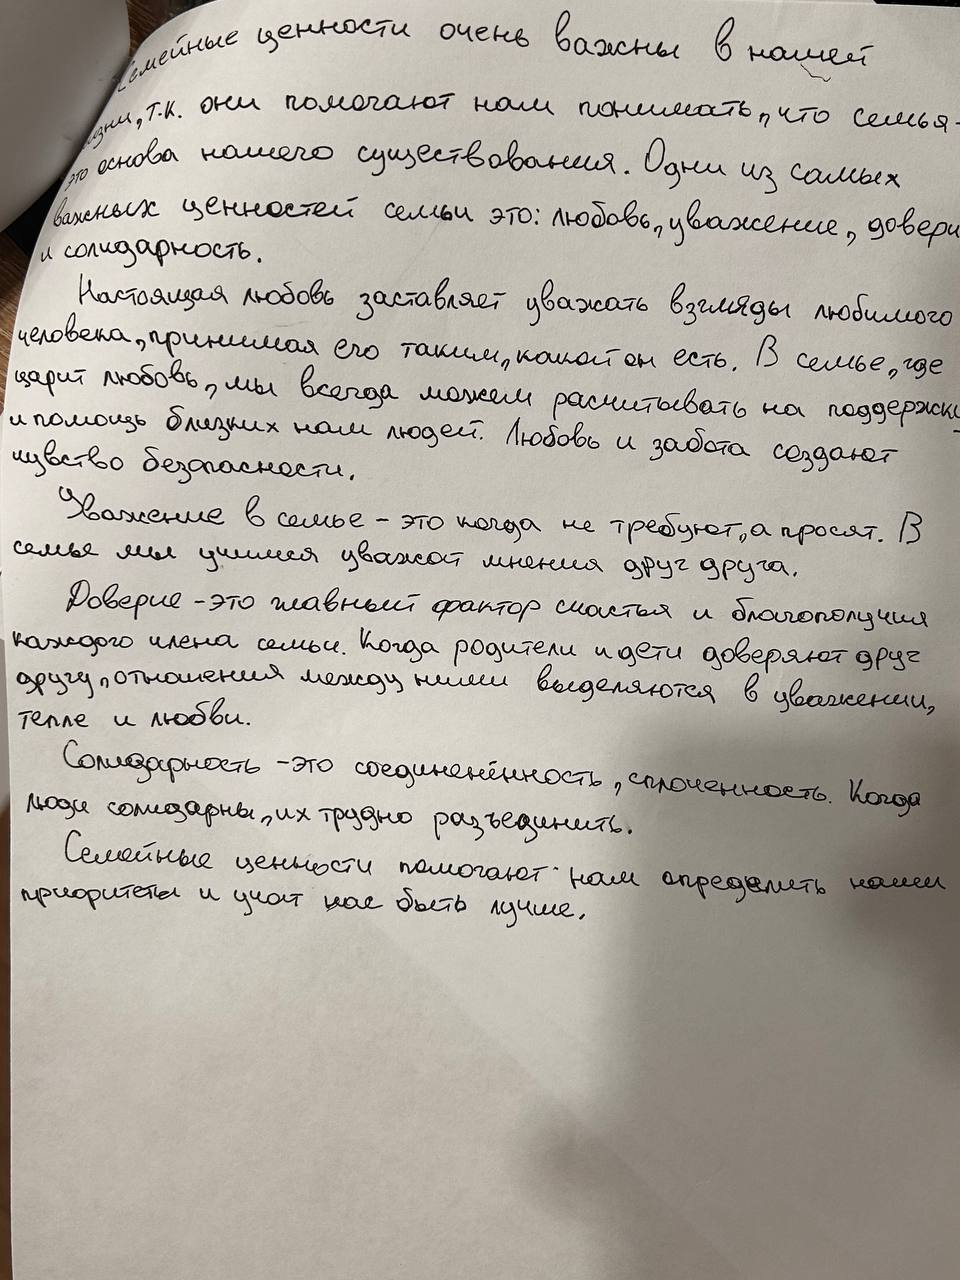 Семейные ценности очень важны в нашей
жизни, т.к. они помогают нам понимать, что семья -
это основа нашего существования. Одни из самых
важных ценностей семьи это: любовь, уважение, довери
и солидарность.
Настоящая любовь заставляет уважать взгляды любимого
человека, принимая его таким, какой он есть. В семье, где
царит любовь, мы всегда можем расчитывать на поддержку
и помощь близких нам людей. Любовь и забота создают
чувство безопасности.
Уважение в семье - это когда не требуют, а просят. В
семье мы учимся уважат мнения друг друга.
Доверие - это главный фактор счастья и благополучия
каждого члена семьи. Когда родители и дети доверяют друг
другу, отношения между ними выделяются в уважении,
тепле и любви.
Солидарность - это соединенённость, сплоченность. Когда
люди солидарны, их трудно разъединить.
Семейные ценности помогают нам определить наши
приоритеты и учат нас быть лучше.